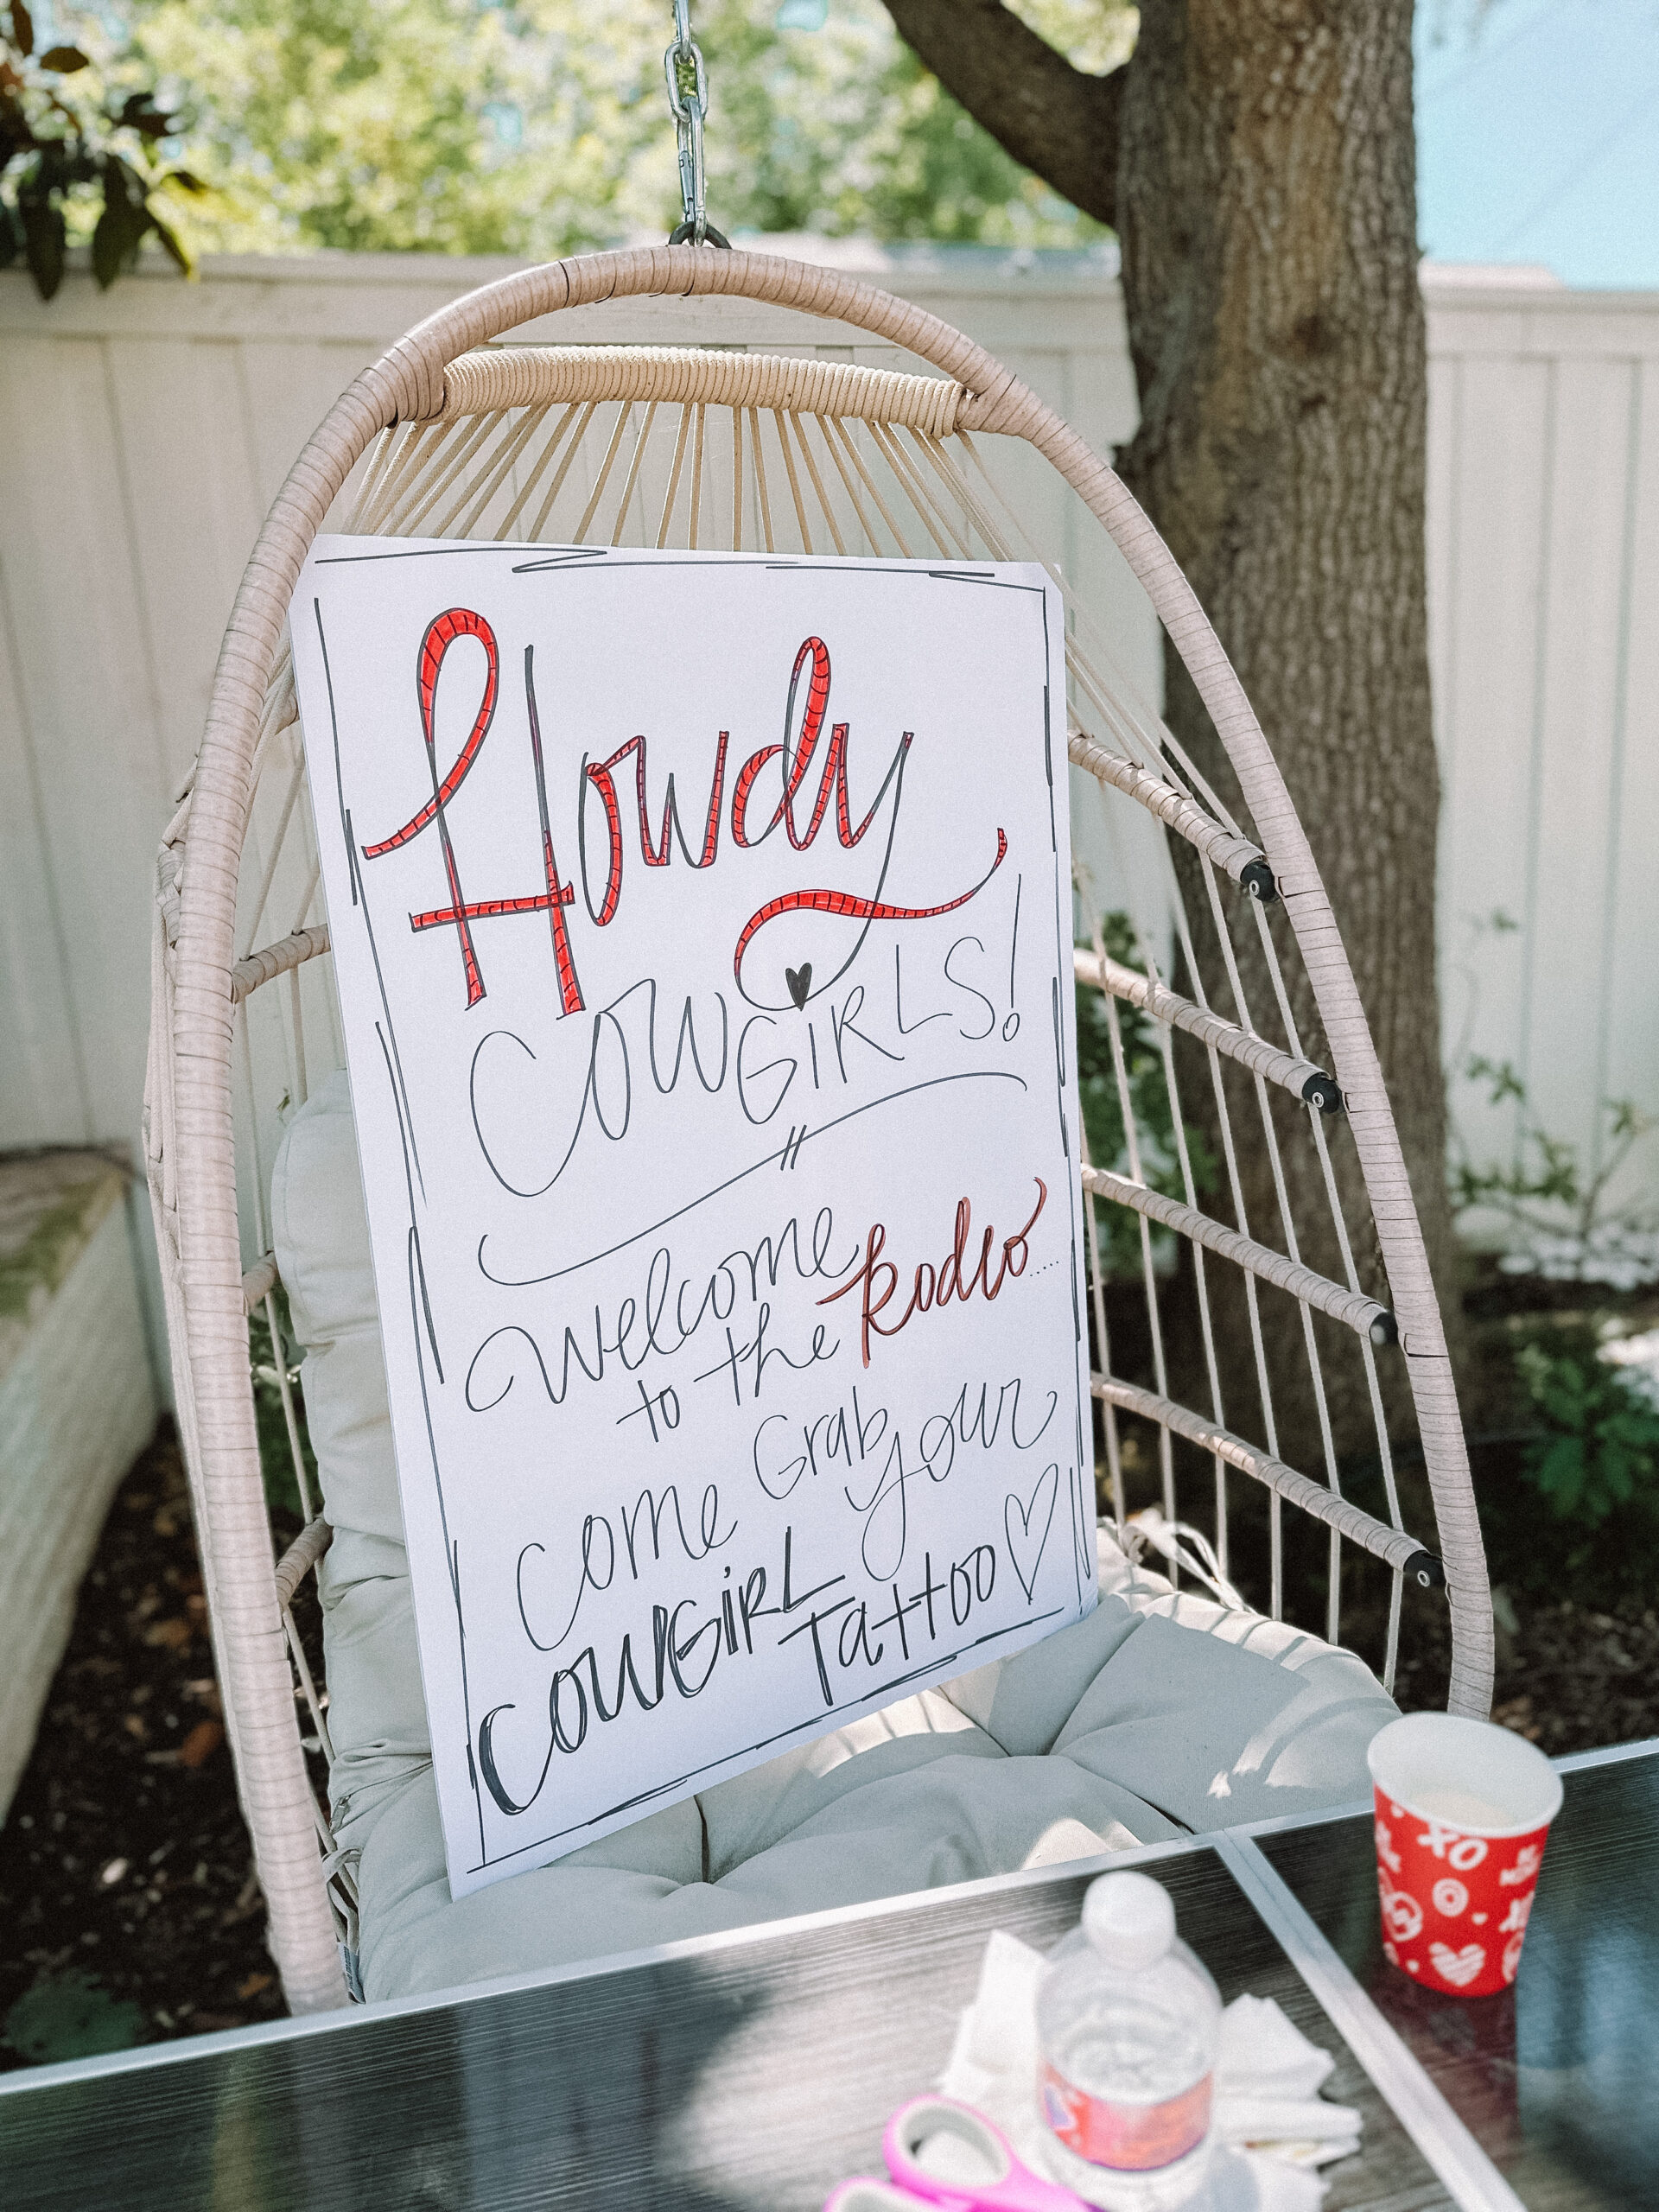 Howdy
COWGiRLS!
welcome
to the Rodeo.....
come Grab your
COWGiRL Tattoo
XO
XO